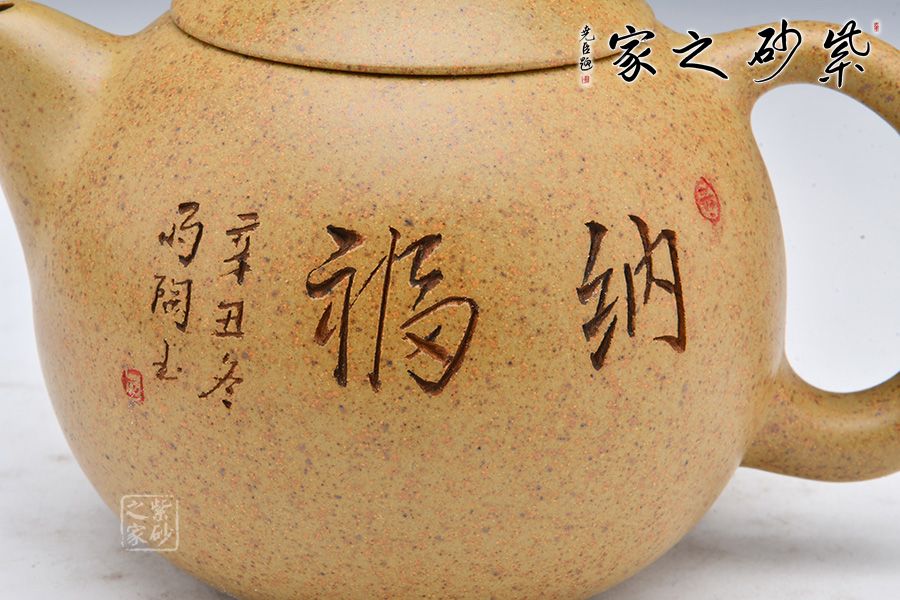 紫砂之家
尧臣题
纳福
辛丑冬
陶
紫砂
之家